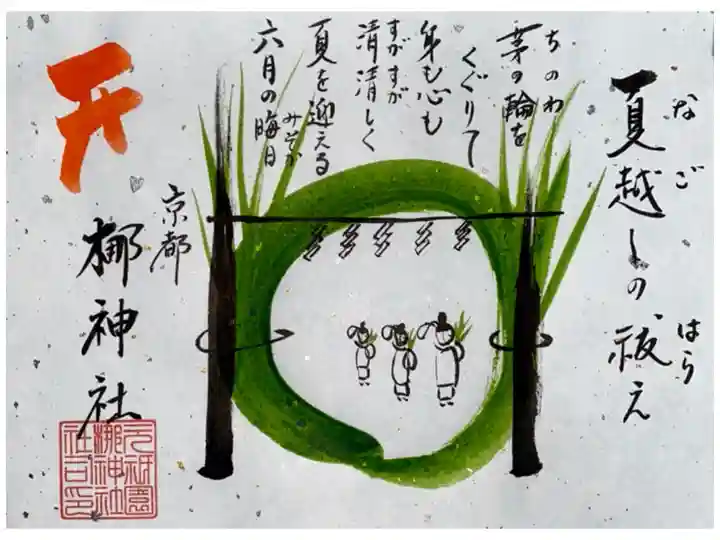 夏越しの祓え
なご
はら
茅の輪を
ちのわ
くぐりて
身も心も
清清しく
すがすが
夏を迎える
六月の晦日
みそか
京都
梛神社
元祇園
梛神社